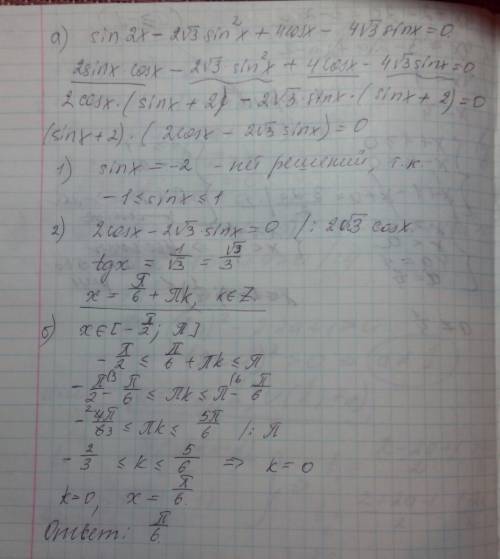 а) sin 2x - 2√3 sin²x + 4cosx - 4√3 sinx = 0
2sinx cosx - 2√3 sin²x + 4cosx - 4√3 sinx = 0
2cosx·(sinx + 2) - 2√3·sinx·(sinx + 2) = 0
(sinx + 2)·(2cosx - 2√3 sinx) = 0
1) sinx = -2 - нет решений, т.к.
-1 ≤ sinx ≤ 1
2) 2cosx - 2√3·sinx = 0 /: 2√3 cosx
tgx = 1/√3 = √3/3
x = π/6 + πk, k∈Z
б) x∈[-π/2; π]
-π/2 ≤ π/6 + πk ≤ π
-π/2 \3 - π/6 ≤ πk ≤ π \6 - π/6
-4π/6 2 3 ≤ πk ≤ 5π/6 /: π
-2/3 ≤ k ≤ 5/6 => k = 0
k=0, x = π/6
Ответ: π/6